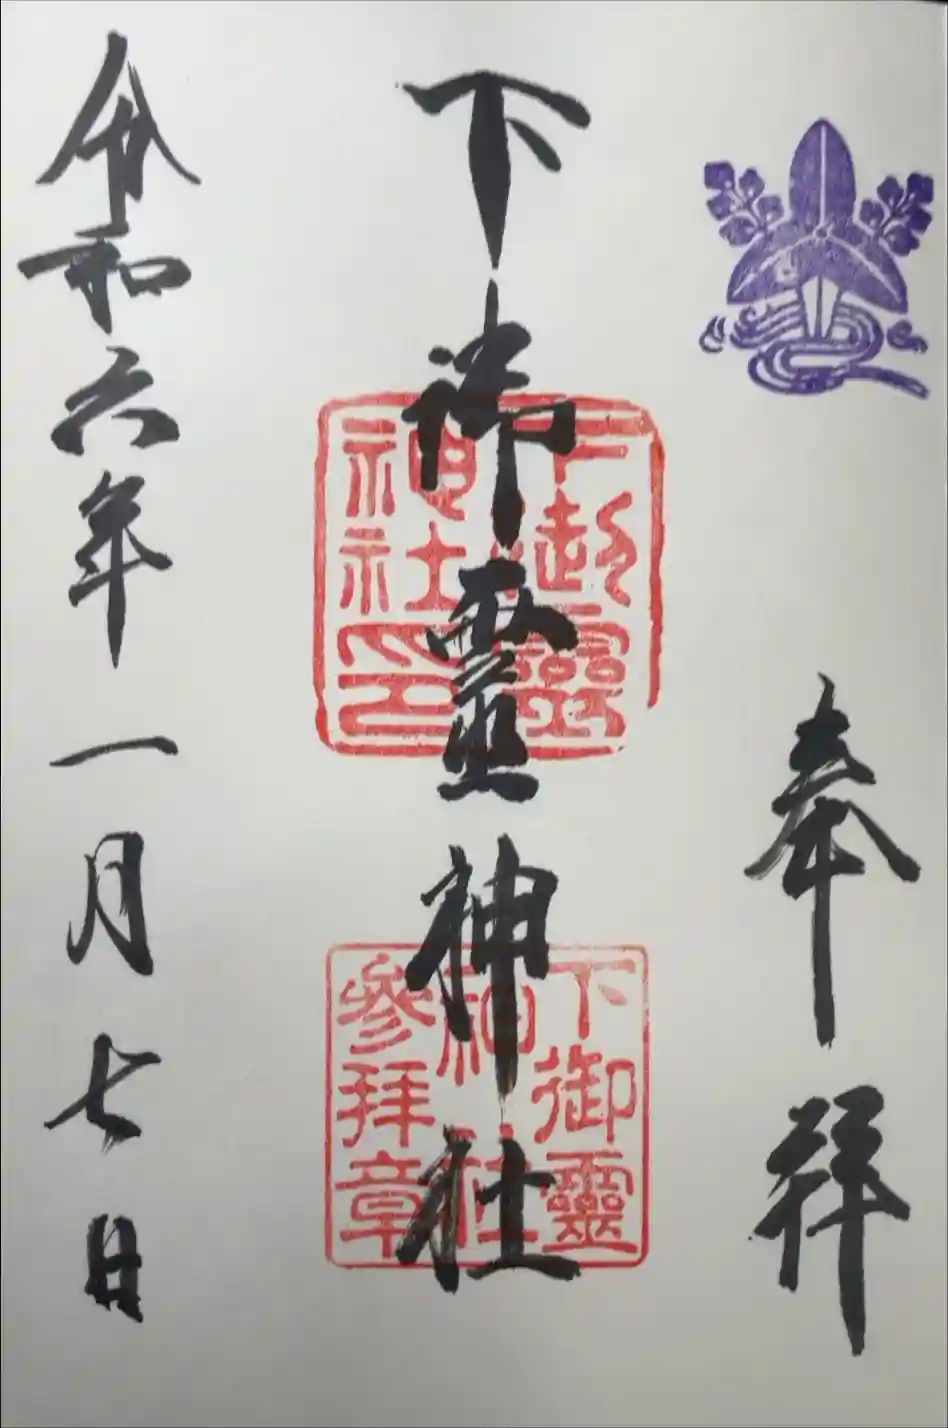 奉拝
下御靈神社
下御靈神社印
下御靈神社參拝章
令和六年一月七日